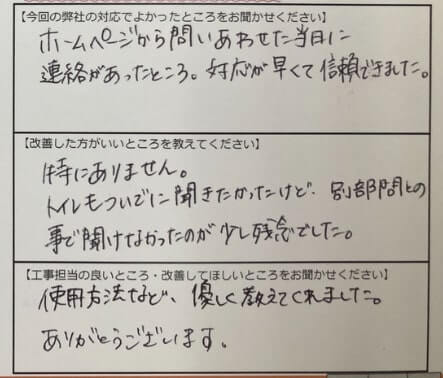 【今回の弊社の対応でよかったところをお聞かせください】
ホームページから問いあわせた当日に
連絡があったところ。対応が早くて信頼できました。
【改善した方がいいところを教えてください】
特にありません。
トイレもついでに聞きたかったけど、別部問との
事で聞けなかったのが少し残念でした。
【工事担当の良いところ・改善してほしいところをお聞かせください】
使用方法など、優しく教えてくれました。
ありがとうございます。